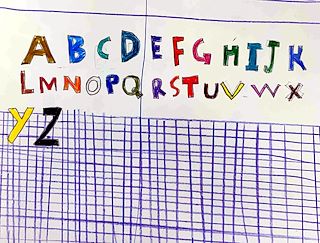 A B C D E F G H I J K
L M N O P Q R S T U V W X
Y Z